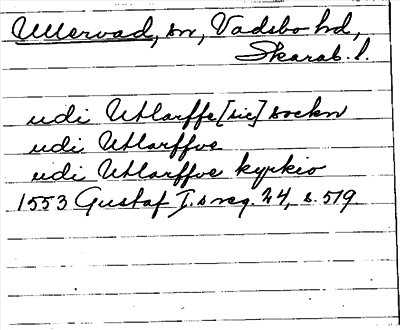 Ullervad, sn, Vadsbo hd,
Skarab. l.
udi Utlarffe [sic] sockn
udi Utlarffve
udi Utlarffve kyrkio
1553 Gustaf I.s reg. 24, s. 519